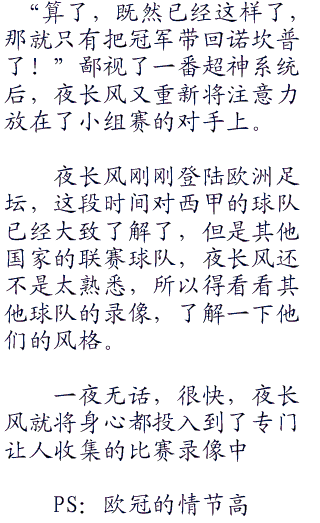 “算了，既然已经这样了，
那就只有把冠军带回诺坎普
了！”鄙视了一番超神系统
后，夜长风又重新将注意力
放在了小组赛的对手上。
夜长风刚刚登陆欧洲足
坛，这段时间对西甲的球队
已经大致了解了，但是其他
国家的联赛球队，夜长风还
不是太熟悉，所以得看看其
他球队的录像，了解一下他
们的风格。
一夜无话，很快，夜长
风就将身心都投入到了专门
让人收集的比赛录像中
PS：欧冠的情节高